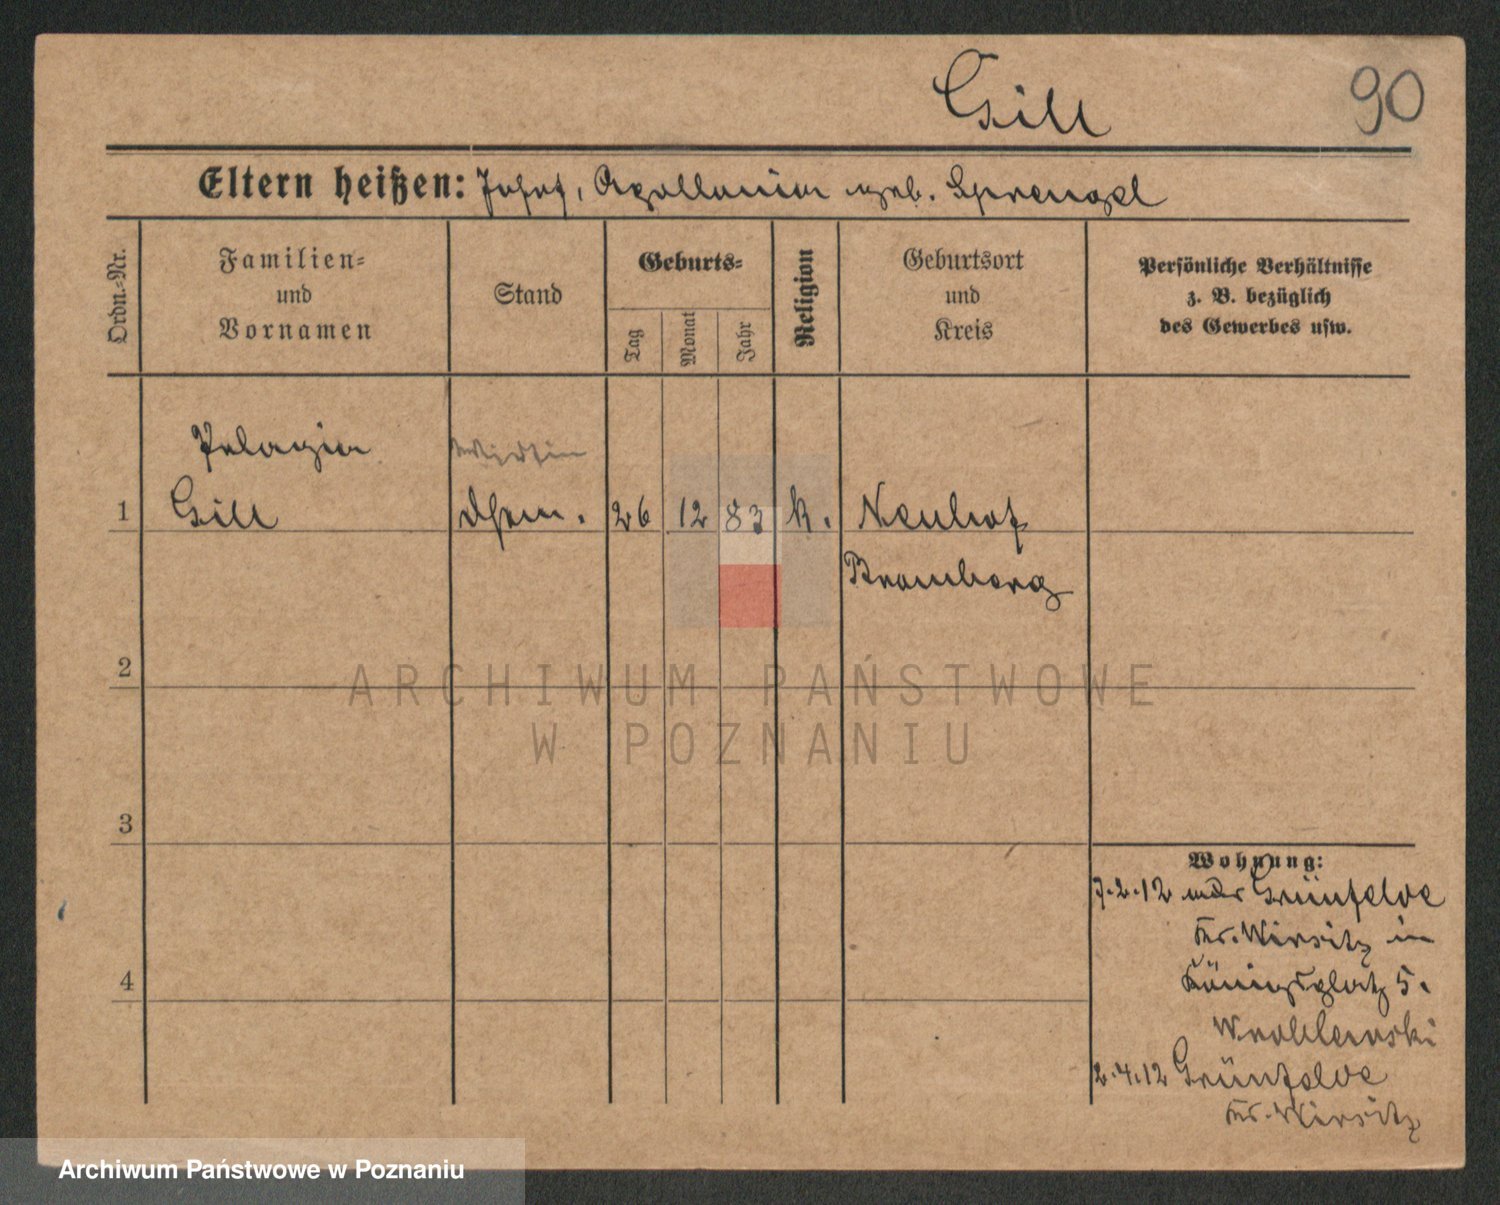 Gill
90
Eltern heißen: Josef, Apollonia geb. Sprengel
Ordn.-Nr.
Familien-
und
Vornamen
Stand
Geburts-
Tag
Monat
Jahr
Religion
Geburtsort
und
Kreis
Persönliche Verhältnisse
z. B. bezüglich
des Gewerbes usw.
Pelagia
Wirtin
1 Gill 26 12 83 k. Neuhof
Bromberg
2
ARCHIWUM PAŃSTWOWE
W POZNANIU
3
Wohnung:
7.2.12 Grünfelde
Kr. Wirsitz in
4
Königsplatz 5.
Wroblewski
2.4.12 Grünfelde
Kr. Wirsitz
Archiwum Państwowe w Poznaniu